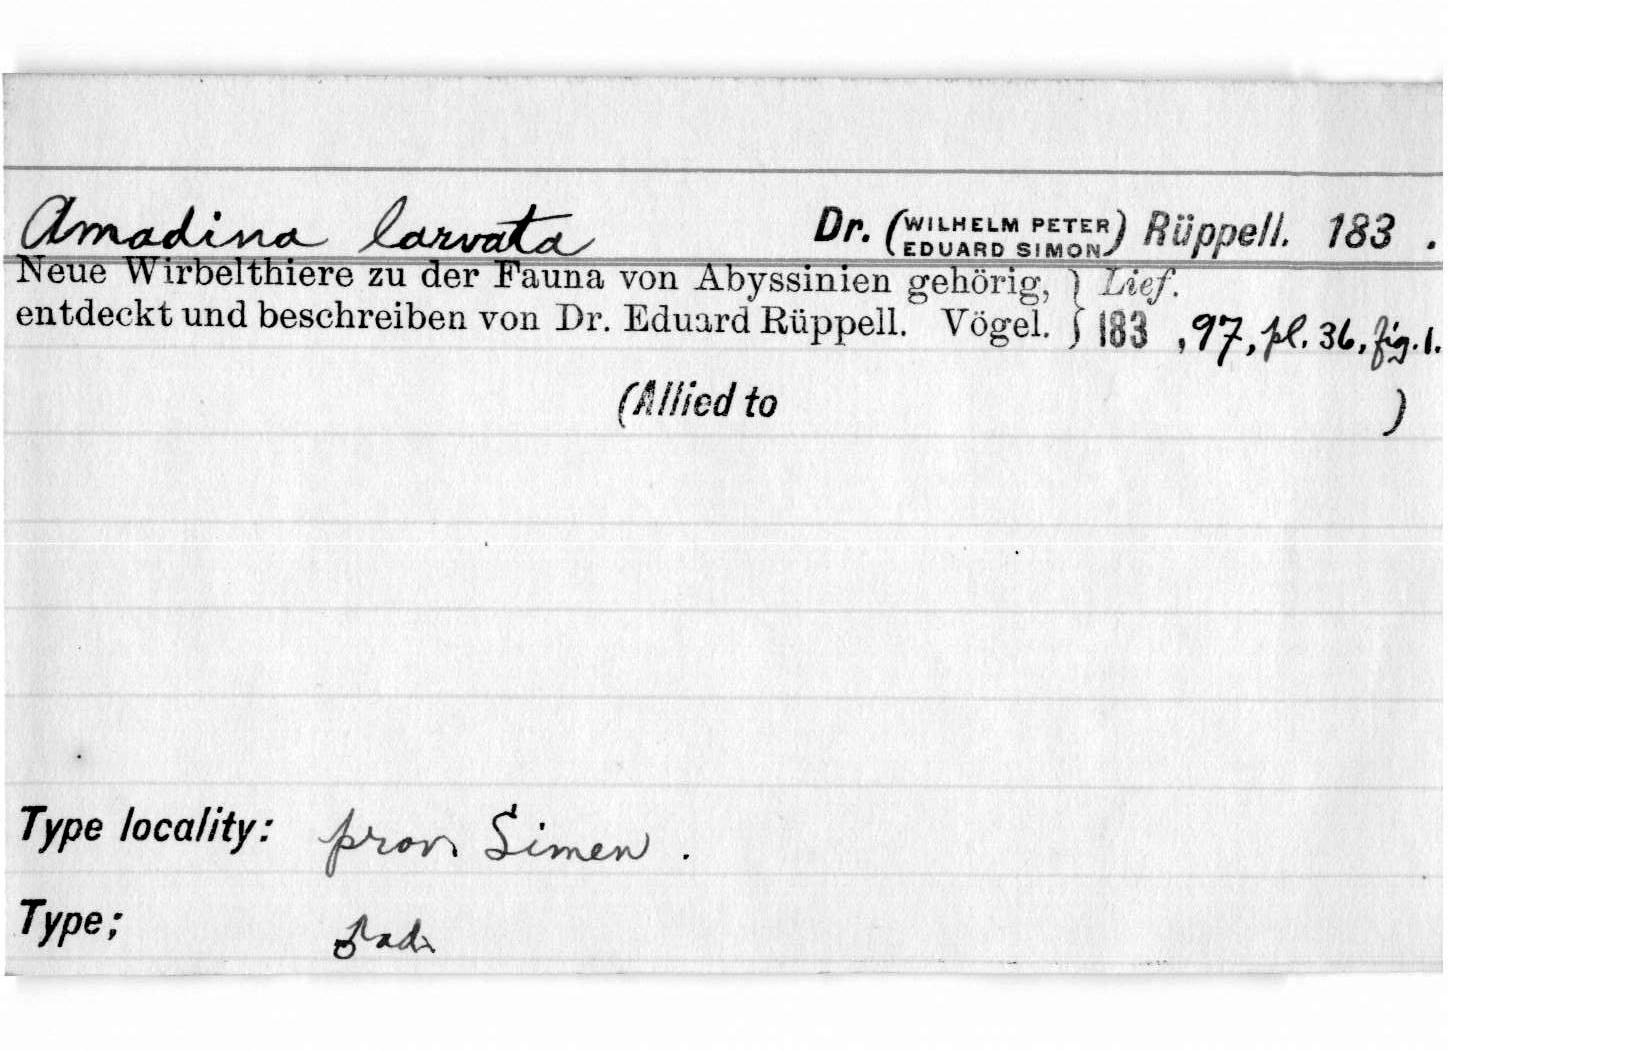 Amadina larvata Dr. (WILHELM PETER EDUARD SIMON) Rüppell. 183 .
Neue Wirbelthiere zu der Fauna von Abyssinien gehörig, } Lief.
entdeckt und beschreiben von Dr. Eduard Rüppell. Vögel. } 183 , 97, pl. 36, fig. 1.
(Allied to )
Type locality: prov. Simen .
Type; ♂ ad.